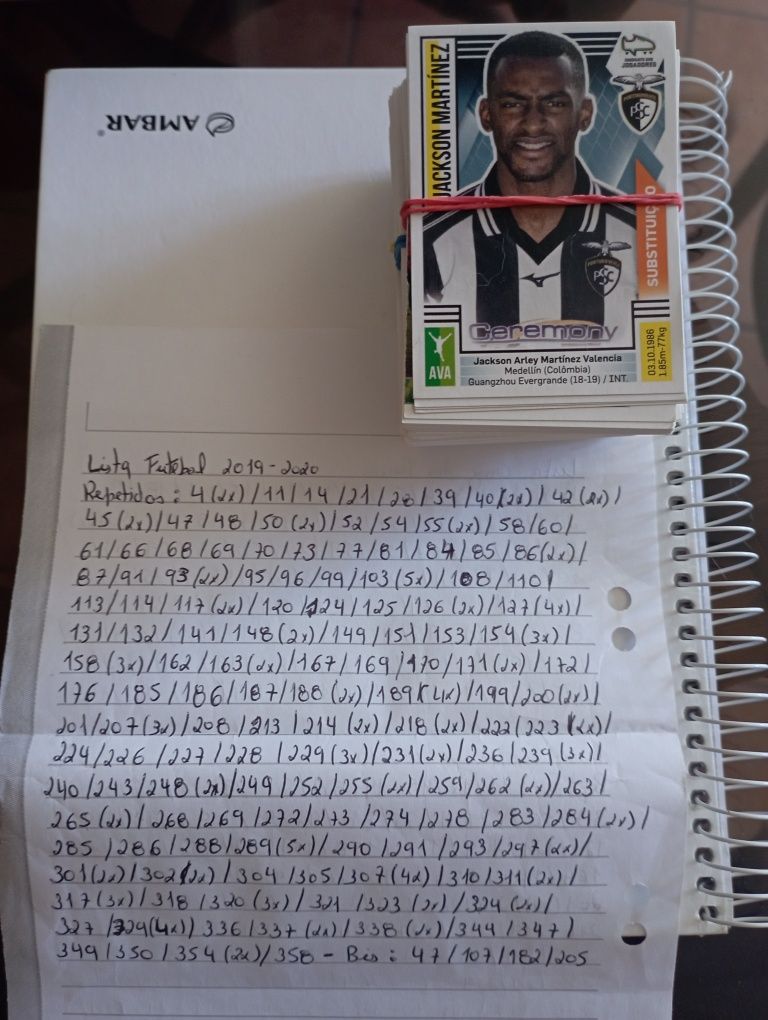 AMBAR®
JACKSON MARTÍNEZ
SINDICATO DOS
JOGADORES
PORTIMONENSE
PSC
SUBSTITUIÇÃO
Ceremony
AVA
Jackson Arley Martínez Valencia
Medellín (Colômbia)
Guangzhou Evergrande (18-19) / INT.
03.10.1986
1.85m-77kg
Lista Futebol 2019-2020
Repetidos: 4(2x)/11/14/21/28/39/40(2x)/42(2x)/
45(2x)/47/48/50(2x)/52/54/55(2x)/58/60/
61/66/68/69/70/73/77/81/84/85/86(2x)/
87/91/93(2x)/95/96/99/103(5x)/108/110/
113/114/117(2x)/120/124/125/126(2x)/127(4x)/
131/132/141/148(2x)/149/151/153/154(3x)/
158(3x)/162/163(2x)/167/169/170/171(2x)/172/
176/185/186/187/188(2x)/189(4x)/199/200(2x)/
201/207(3x)/208/213/214(2x)/218(2x)/222/223(2x)/
224/226/227/228/229(3x)/231(2x)/236/239(3x)/
240/243/248(2x)/249/252/255(2x)/259/262(2x)/263/
265(2x)/268/269/272/273/274/278/283/284(2x)/
285/286/288/289(5x)/290/291/293/297(2x)/
301(2x)/302(2x)/304/305/307(4x)/310/311(2x)/
317(3x)/318/320(3x)/321/323(2x)/324(2x)/
327/329(4x)/336/337(2x)/338(2x)/344/347/
349/350/354(2x)/358 - Bis: 47/107/182/205